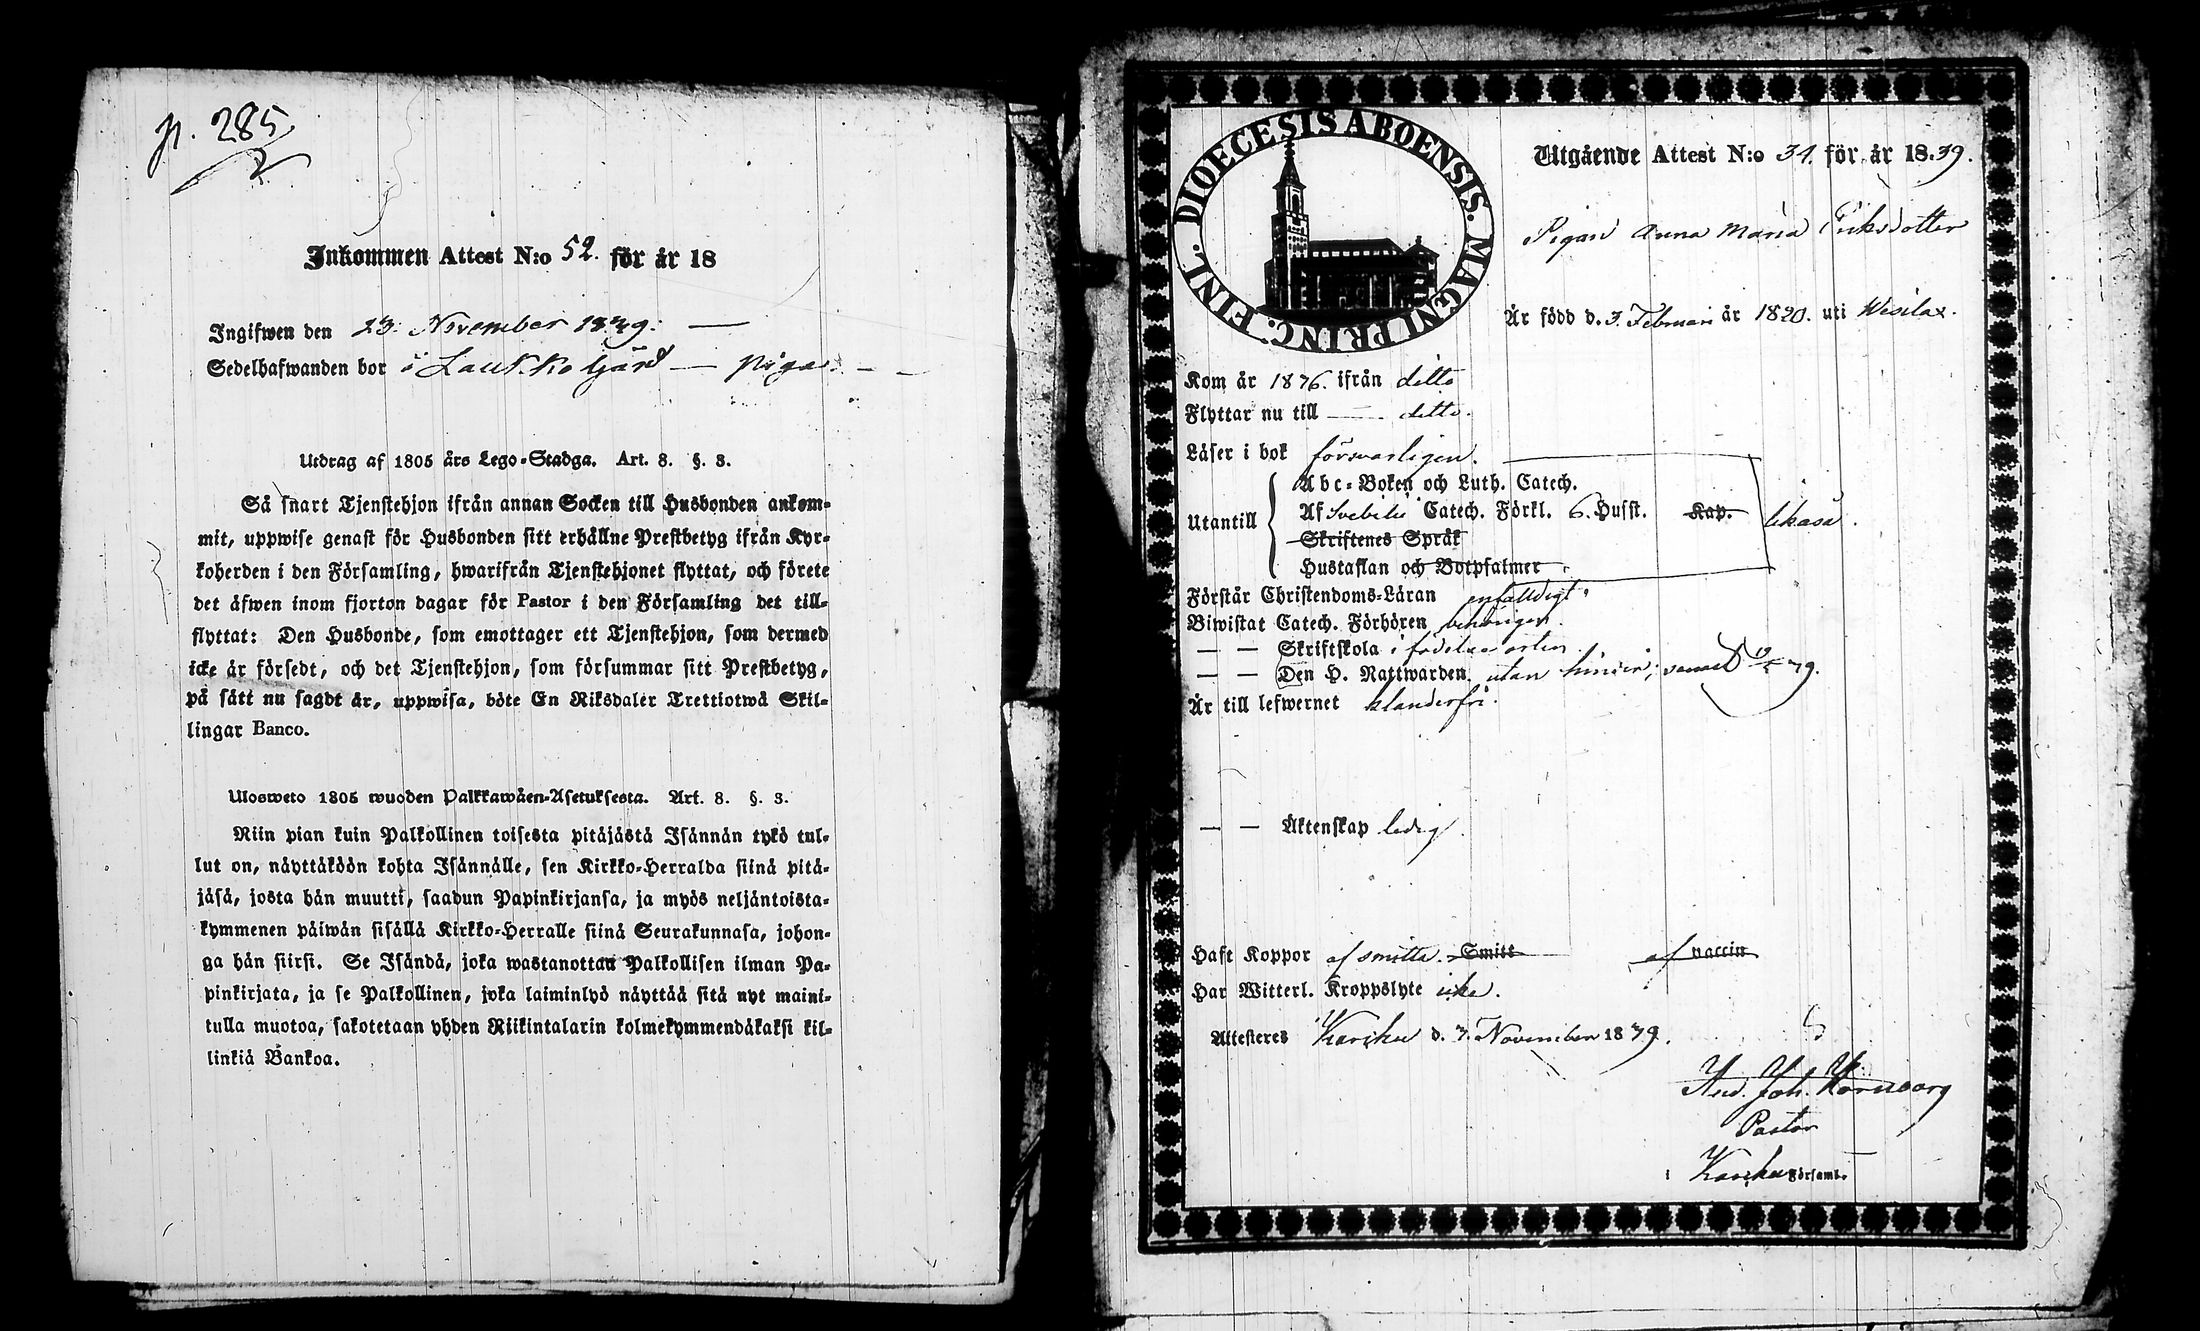 p. 285
2
Inkommen Attest N:o 52. för år 18
Ingifwen den 23. November 1839. —
Sedelhafwanden bor i Laukko gård — piga. — —
Utdrag af 1805 års Lego-Stadga. Art. 8. §. 3.
Så snart Tjenstehjon ifrån annan Socken till Husbonden ankom-
mit, uppwise genast för Husbonden sitt erhållne Prestbetyg ifrån Kyr-
koherden i den Församling, hwarifrån Tjenstehjonet flyttat, och förete
det äfwen inom fjorton dagar för Pastor i den Församling det till-
flyttat: Den Husbonde, som emottager ett Tjenstehjon, som dermed
icke är försedt, och det Tjenstehjon, som försummar sitt Prestbetyg,
på sätt nu sagdt är, uppwisa, böte En Riksdaler Trettiotwå Skil-
lingar Banco.
Ulosweto 1805 wuoden Palkkawäen-Asetuksesta. Art. 8. §. 3.
Niin pian kuin Palkollinen toisesta pitäjästä Isännän tykö tul-
lut on, näyttäköön kohta Isännälle, sen Kirkko-Herralda siinä pitä-
jäsä, josta hän muutti, saadun Papinkirjansa, ja myös neljäntoista-
kymmenen päiwän sisällä Kirkko-Herralle siinä Seurakunnasa, johon-
ga hän siirsi. Se Isändä, joka wastanottaa Palkollisen ilman Pa-
pinkirjata, ja se Palkollinen, joka laiminlyö näyttää sitä nyt maini-
tulla muotoa, sakotetaan yhden Riikintalarin kolmekymmendäkaksi kil-
linkiä Bankoa.
DIOECESIS ABOENSIS. MAGNI PRINC: FINL.
Utgående Attest N:o 31. för år 1839.
Pigan Anna Maria Eriksdotter
Är född d. 3. Februari år 1820. uti Wesilax.
Kom år 1836. ifrån ditto
Flyttar nu till — ditto.
Läser i bok försvarligen.
Abc-Boken och Luth. Catech.
Utantill Af Svebilii Catech. Förkl. 6. Husst. Kap. likaså.
Skriftenes Språk
Hustaflan och Botpsalmer
Förstår Christendoms-Läran enfalldigt.
Biwistat Catech. Förhören behörigen.
— — Skriftskola i födelseorten.
— — Den H. Nattwarden utan hinder;
Är till lefwernet klanderfri.
— — Äktenskap ledig.
Haft Koppor af smitta. Smitt af vaccin
Har Witterl. Kroppslyte icke.
Attesteres Karcku d. 7. November 1839.
And. Joh.
Pastor
i Karcku Församl.